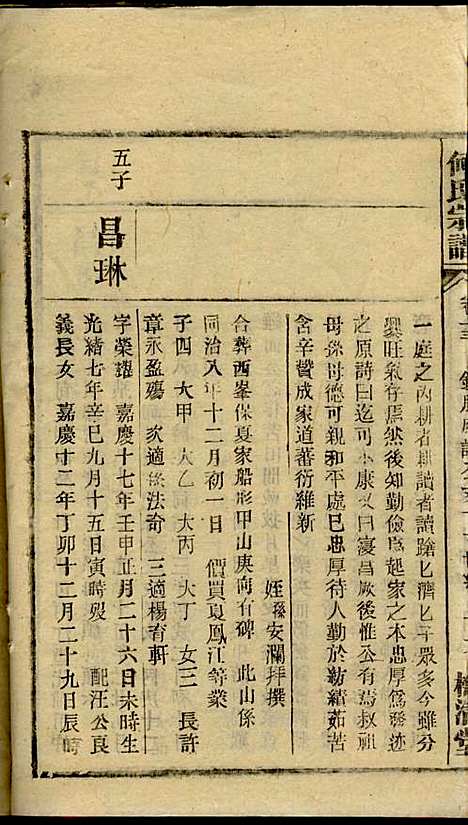 何氏宗譜
一庭之內耕者耕讀者讀蹌匕濟匕子衆多今雖分
爨旺氣存焉然後知勤儉為起家之本忠厚為發迹
之原詩曰迄可小康又曰寖昌厥後惟公有焉叔祖
母孫母德可親和平處巳忠厚待人勤於紡績茹苦
含辛贊成家道蕃衍維新
姪孫安瀾拜撰
合葬西峯保夏家船形甲山庚向有碑 此山係
同治八年十二月初一日 價買夏鳳江等業
子四 大甲 大乙 大丙 大丁 女三 長許
章永盈殤 次適徐法奇 三適楊育軒
五子
昌琳
字榮謹 嘉慶十七年壬申正月二十六日未時生
光緒七年辛巳九月十五日寅時殁 配汪公良
義長女 嘉慶十二年丁卯十二月二十九日辰時